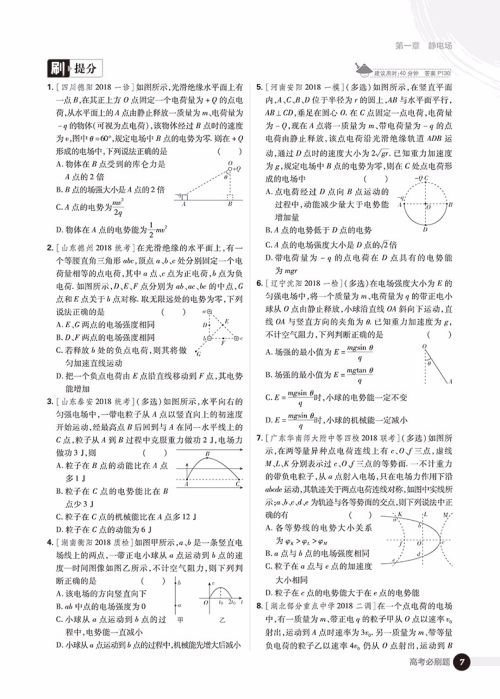 第一章 静电场
刷 提分
建议用时:40分钟 答案P130
1. [四川德阳 2018 一诊]如图所示,光滑绝缘水平面上有
一点 B,在其正上方 O 点固定一个电荷量为 +Q 的点电
荷,从水平面上的 A 点由静止释放一质量为 m、电荷量为
-q 的物体(可视为点电荷),该物体经过 B 点时的速度
为 v,图中 θ=60°,规定电场中 B 点的电势为零.则在 +Q
形成的电场中,下列说法正确的是 ( )
A. 物体在 B 点受到的库仑力是
A 点的 2 倍
B. B 点的场强大小是 A 点的 2 倍
C. A 点的电势为 mv²/2q
D. 物体在 A 点的电势能为 1/2 mv²
O
+Q
θ
A B
2. [山东德州 2018 统考]在光滑绝缘的水平面上,有一
个等腰直角三角形 abc,顶点 a、b、c 处分别固定一个电
荷量相等的点电荷,其中 a 点、c 点为正电荷,b 点为负
电荷.如图所示,D、E、F 点分别为 ab、ac、bc 的中点,G
点和 E 点关于 b 点对称.取无限远处的电势为零,下列
说法正确的是 ( )
A. E、G 两点的电场强度相同
B. D、F 两点的电场强度相同
C. 若释放 b 处的负点电荷,则其将做
匀加速直线运动
D. 把一个负点电荷由 E 点沿直线移动到 F 点,其电势
能增加
3. [山东泰安 2018 统考](多选)如图所示,水平向右的
匀强电场中,一带电粒子从 A 点以竖直向上的初速度
开始运动,经最高点 B 后回到与 A 在同一水平线上的
C 点,粒子从 A 到 B 过程中克服重力做功 2 J,电场力
做功 3 J,则 ( )
A. 粒子在 B 点的动能比在 A 点
多 1 J
B. 粒子在 C 点的电势能比在 B
点少 3 J
C. 粒子在 C 点的机械能比在 A 点多 12 J
D. 粒子在 C 点的动能为 6 J
B
A C
4. [湖南衡阳 2018 质检]如图甲所示,a、b 是一条竖直电
场线上的两点,一带正电小球从 a 点运动到 b 点的速
度—时间图像如图乙所示,不计空气阻力,则下列判
断正确的是 ( )
A. 该电场的方向竖直向下
B. ab 中点的电场强度为 0
C. 小球从 a 点运动到 b 点的过
程中,电势能一直减小
D. 小球从 a 点运动到 b 点的过程中,机械能先增大后减小
甲 乙
5. [河南安阳 2018 一模](多选)如图所示,在竖直平面
内,A、C、B、D 位于半径为 r 的圆上,AB 与水平面平行,
AB⊥CD,垂足在圆心 O.在 C 点固定一点电荷,电荷量
为 -Q,现在 A 点将一质量为 m、带电荷量为 -q 的点
电荷由静止释放,该点电荷沿光滑绝缘轨道 ADB 运
动,通过 D 点时的速度大小为 2√gr.已知重力加速度
为 g,规定电场中 B 点的电势为零,则在 C 处点电荷形
成的电场中 ( )
A. 点电荷经过 D 点向 B 点运动的
过程中,动能减少量大于电势能
增加量
B. A 点的电势低于 D 点的电势
C. A 点的电场强度大小是 D 点的√2倍
D. 带电荷量为 -q 的点电荷在 D 点具有的电势能
为 mgr
6. [辽宁沈阳 2018 一检](多选)在电场强度大小为 E 的
匀强电场中,将一个质量为 m、电荷量为 q 的带正电小
球从 O 点由静止释放,小球沿直线 OA 斜向下运动,直
线 OA 与竖直方向的夹角为 θ.已知重力加速度为 g,
不计空气阻力,下列判断正确的是 ( )
A. 场强的最小值为 E = mgsin θ/q
B. 场强的最小值为 E = mgtan θ/q
C. E = mgsin θ/q 时,小球的电势能一定不变
D. E = mgsin θ/q 时,小球的机械能一定减小
O
θ
A
7. [广东华南师大附中等四校 2018 联考](多选)如图所
示,在两等量异种点电荷连线上有 e、O、f 三点,虚线
M、L、K 分别表示过 e、O、f 三点的等势面.一不计重力
的带负电粒子,从 a 点射入电场,只在电场力作用下沿
abcde 运动,其轨迹关于两点电荷连线对称,如图中实线所
示;a、b、c、d、e 为轨迹与各等势面的交点,则下列说法中正
确的有 ( )
A. 各等势线的电势大小关系
为 φK>φL>φM
B. a 点与 b 点的电场强度相同
C. 粒子在 a 点与 e 点的加速度
大小相同
D. 粒子在 c 点的电势能大于在 e 点的电势能
8. [湖北部分重点中学 2018 二调]在一个点电荷的电场
中,有一质量为 m、带正电 q 的粒子甲从 O 点以速率 v₀
射出,运动到 A 点时速率为 3v₀.另一质量为 m、带等量
负电荷的粒子乙以速率 4v₀ 仍从 O 点射出,运动到 B
高考必刷题 7